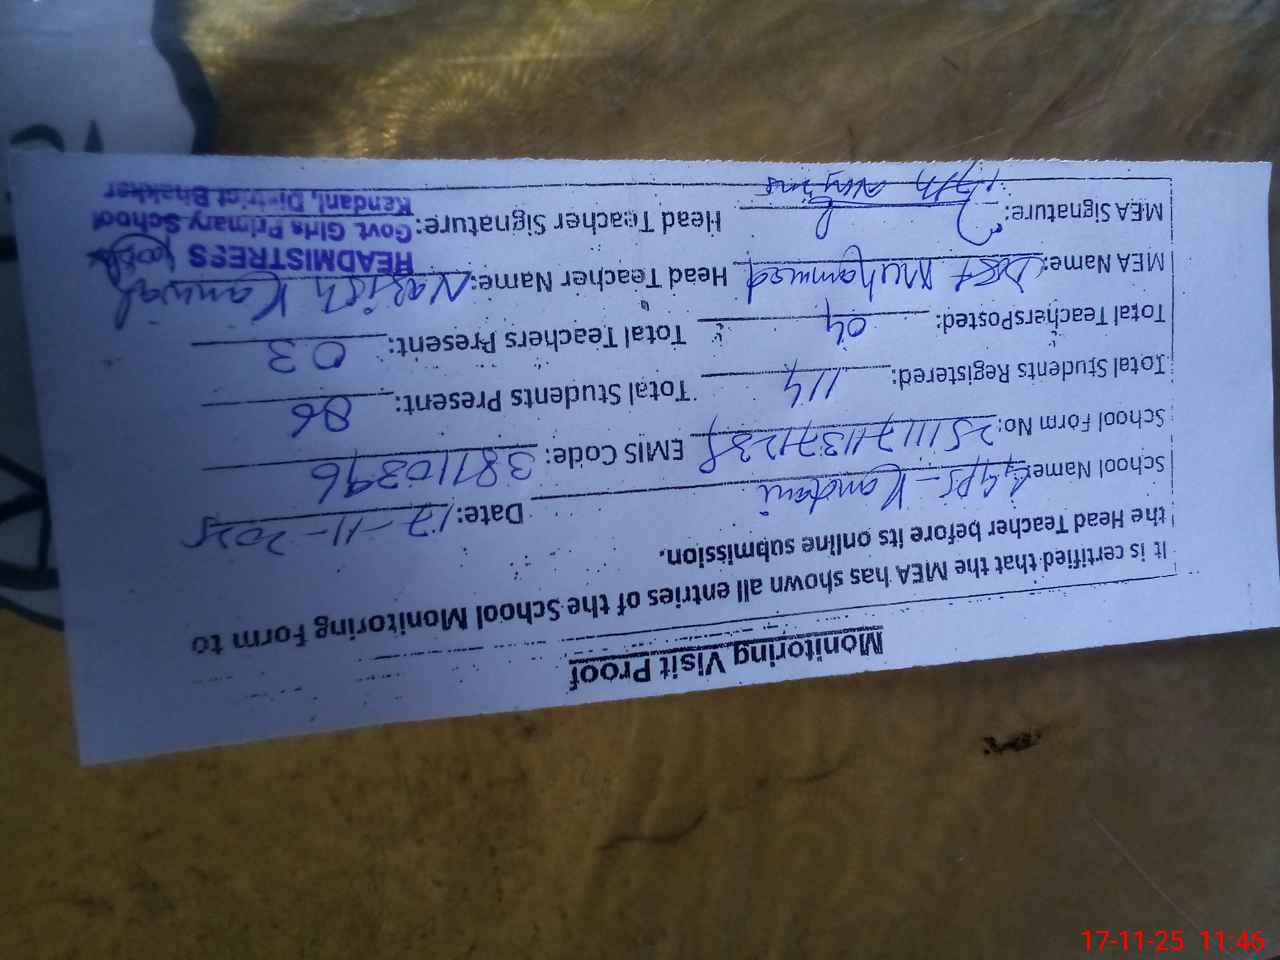 Monitoring Visit Proof
It is certified that the MEA has shown all entries of the School Monitoring Form to
the Head Teacher before its online submission.
School Name: GGPS - Kandani Date: 17-11-2025
School Form No: EMIS Code: 38110396
Total Students Registered: 114 Total Students Present: 86
Total TeachersPosted: 04 Total Teachers Present: 03
MEA Name: Dost Muhammad Head Teacher Name: Nazish Kanwal
MEA Signature: Head Teacher Signature:
HEADMISTRESS
Govt. Girls Primary School
Kandani, District Bhakkar
17-11-25 11:46